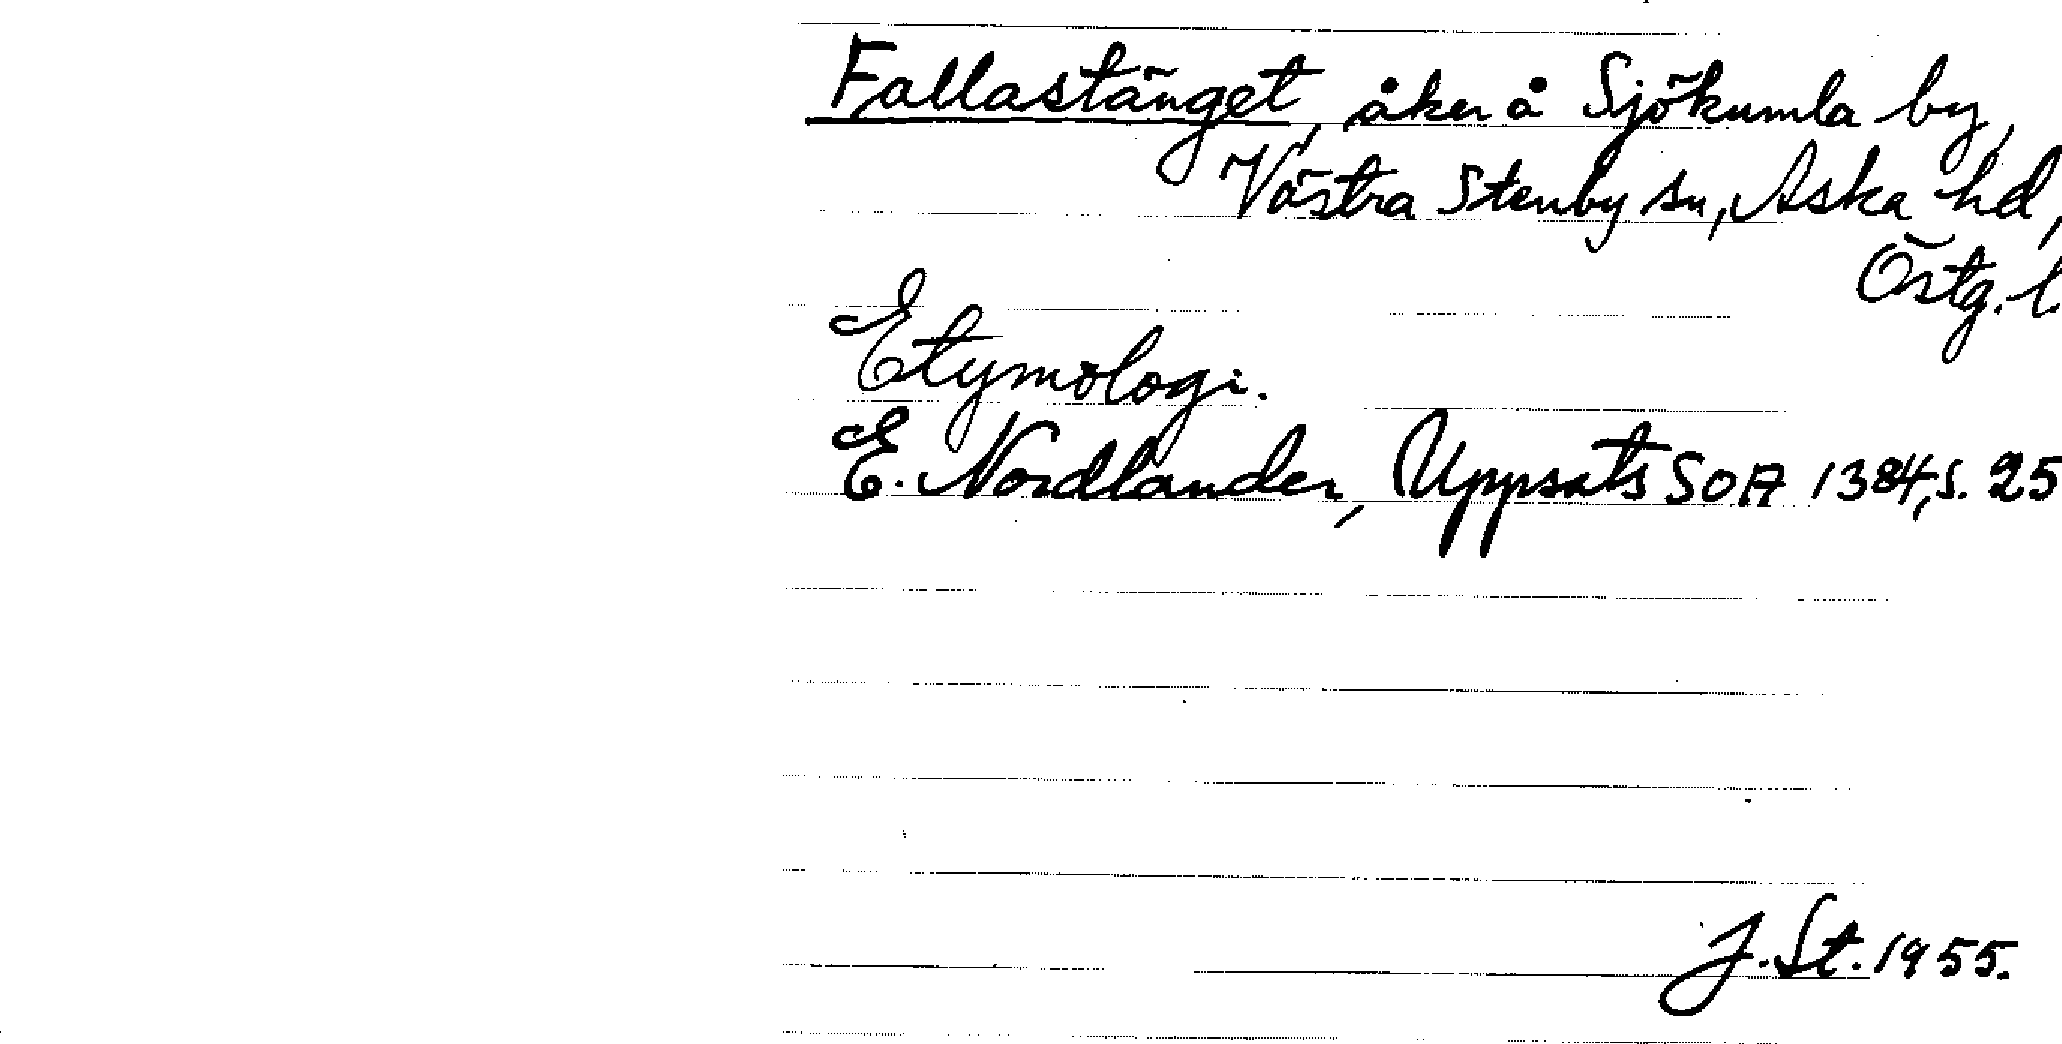 Fallastänget, åker å Sjökumla by,
Västra Stenby sn, Aska hd,
Östg. l.
Etymologi.
E. Nordlander, Uppsats SOA 1384, s. 25
J. St. 1955.